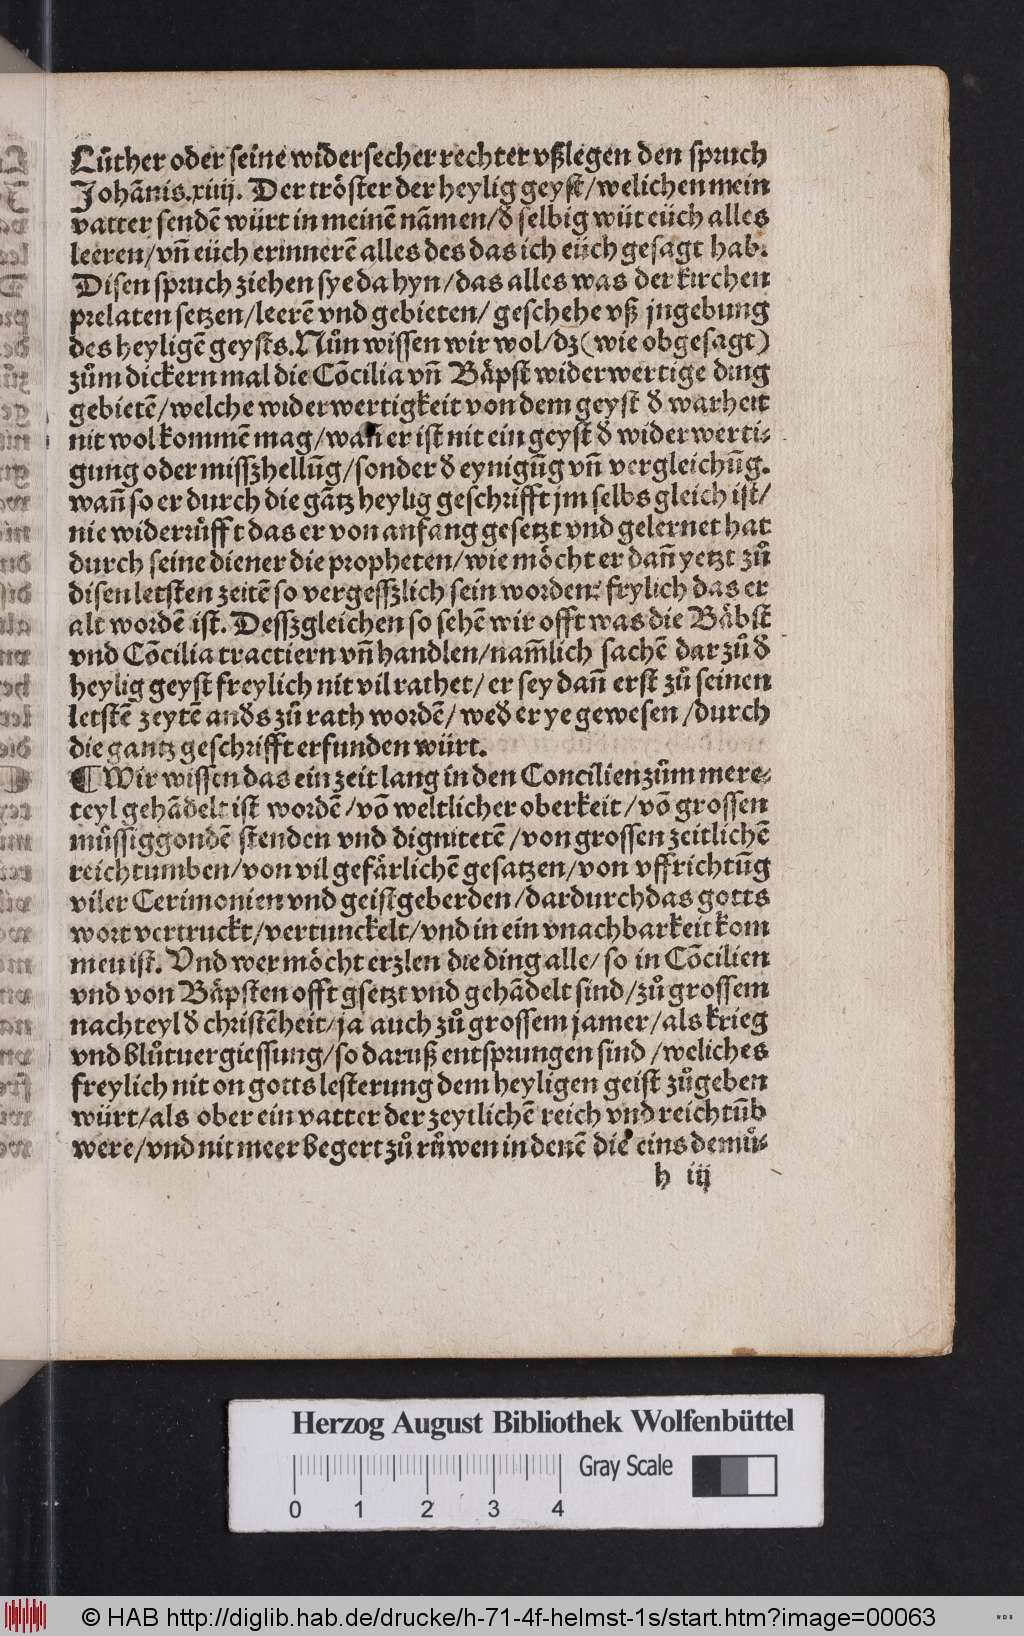 Lůther oder seine widersecher rechter vßlegen den spruch
Johānis.xiiij. Der tröster der heylig geyst/welichen mein
vatter sendē würt in meinē nāmen/đ selbig wüt eüch alles
leeren/vñ eüch erinnerē alles des das ich eüch gesagt hab.
Disen spruch ziehen sye da hyn/das alles was der kirchen
prelaten setzen/leerē vnd gebieten/ geschehe vß jngebung
des heyligē geysts. Nůn wissen wir wol/dz (wie obgesagt)
zům dickern mal die Cōcilia vñ Bäpst widerwertige ding
gebietē/welche widerwertigkeit von dem geyst đ warheit
nit wol kommē mag/wañ er ist nit ein geyst đ widerwerti-
gung oder misszhellūg/sonder đ eynigūg vñ vergleichūg.
wañ so er durch die gātz heylig geschrifft jm selbs gleich ist/
nie widerrüfft das er von anfang gesetzt vnd gelernet hat
durch seine diener die propheten/wie möcht er dañ yetzt zů
disen letsten zeitē so vergesszlich sein worden: frylich das er
alt wordē ist. Desszgleichen so sehē wir offt was die Bäbst
vnd Cōcilia tractiern vñ handlen/nam̄lich sachē dar zů đ
heylig geyst freylich nit vil rathet/ er sey dañ erst zů seinen
letstē zeytē anđs zů rath wordē/ weđ er ye gewesen /durch
die gantz geschrifft erfunden würt.
¶ Wir wissen das ein zeit lang in den Concilien zům mere-
teyl gehādelt ist wordē /vō weltlicher oberkeit/vō grossen
müssiggondē stenden vnd dignitetē /von grossen zeitlichē
reichtumben/von vil gefärlichē gesatzen/von vffrichtūg
viler Cerimonien vnd geistgeberden/dardurch das gotts
wort vertruckt/vertunckelt/vnd in ein vnachbarkeit kom
men ist. Vnd wer möcht erzlen die ding alle/ so in Cōcilien
vnd von Bäpsten offt gsetzt vnd gehādelt sind/zů grossem
nachteyl đ christēheit/ja auch zů grossem jamer/als krieg
vnd blůtuergiessung/so daruß entsprungen sind /weliches
freylich nit on gotts lesterung dem heyligen geist zůgeben
würt/als ober ein vatter der zeytlichē reich vnd reichtūb
were/vnd nit meer begert zů růwen in denē die eins demů-
h iij
Herzog August Bibliothek Wolfenbüttel
Gray Scale
0 1 2 3 4
© HAB http://diglib.hab.de/drucke/h-71-4f-helmst-1s/start.htm?image=00063